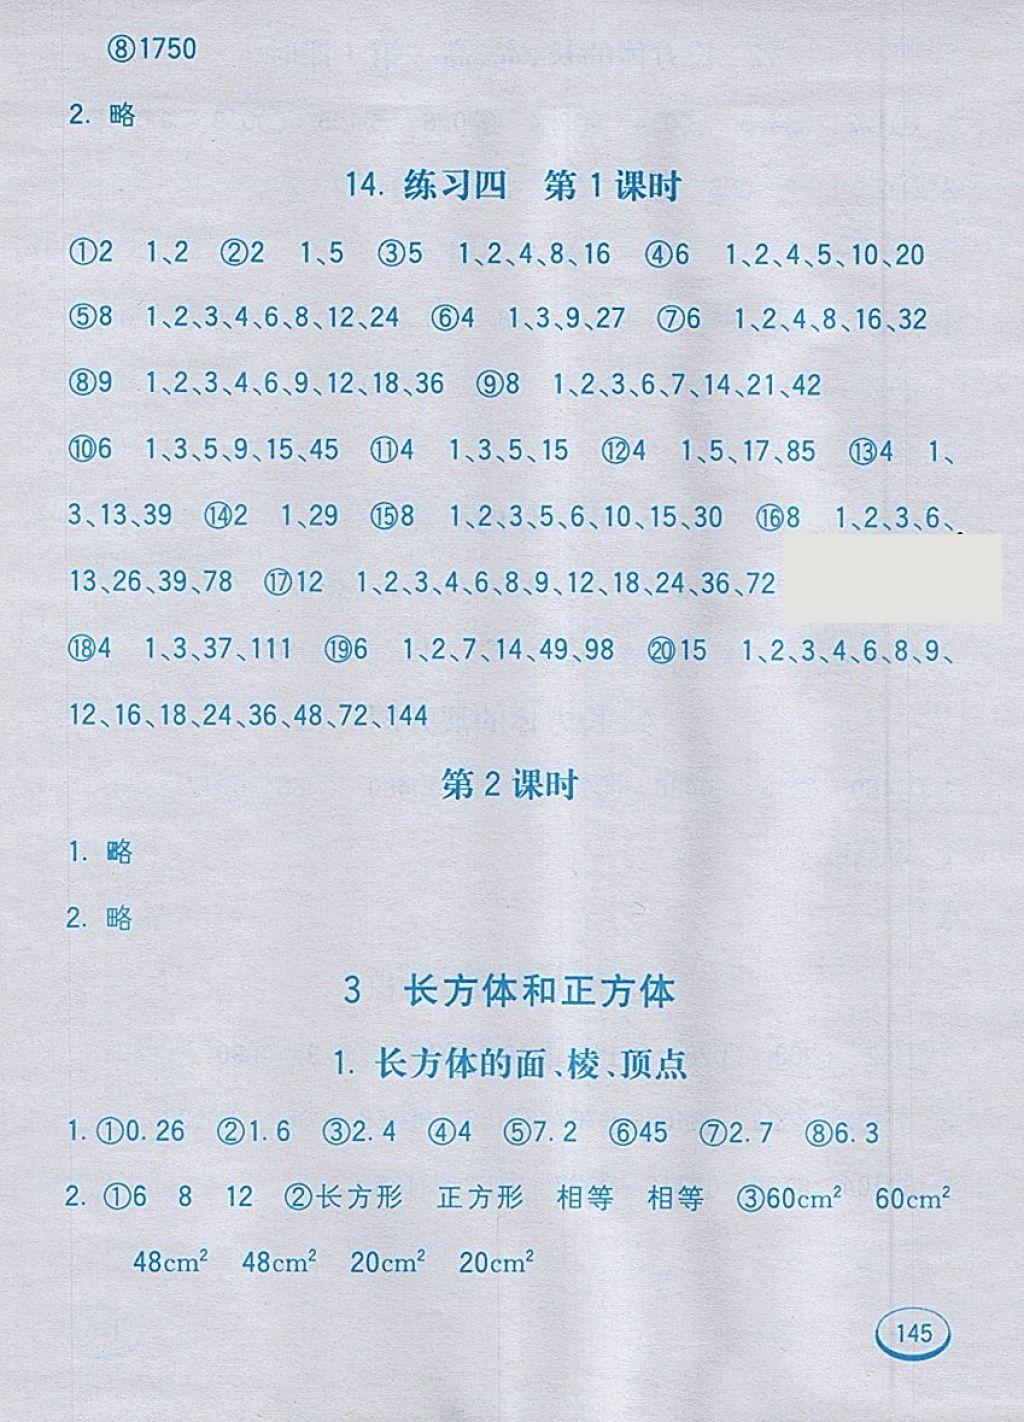 ⑧1750
2. 略
14. 练习四 第1课时
①2 1、2 ②2 1、5 ③5 1、2、4、8、16 ④6 1、2、4、5、10、20
⑤8 1、2、3、4、6、8、12、24 ⑥4 1、3、9、27 ⑦6 1、2、4、8、16、32
⑧9 1、2、3、4、6、9、12、18、36 ⑨8 1、2、3、6、7、14、21、42
⑩6 1、3、5、9、15、45 ⑪4 1、3、5、15 ⑫4 1、5、17、85 ⑬4 1、
3、13、39 ⑭2 1、29 ⑮8 1、2、3、5、6、10、15、30 ⑯8 1、2、3、6、
13、26、39、78 ⑰12 1、2、3、4、6、8、9、12、18、24、36、72
⑱4 1、3、37、111 ⑲6 1、2、7、14、49、98 ⑳15 1、2、3、4、6、8、9、
12、16、18、24、36、48、72、144
第2课时
1. 略
2. 略
3 长方体和正方体
1. 长方体的面、棱、顶点
1. ①0.26 ②1.6 ③2.4 ④4 ⑤7.2 ⑥45 ⑦2.7 ⑧6.3
2. ①6 8 12 ②长方形 正方形 相等 相等 ③60cm² 60cm²
48cm² 48cm² 20cm² 20cm²
145